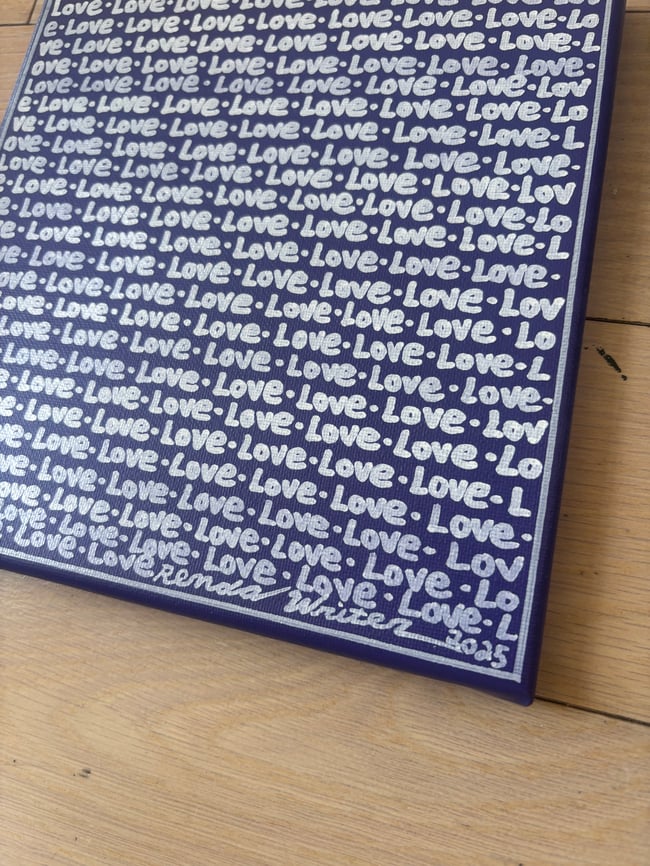 Love·Love·Love·Love·Love·Love·Love·Lov
e·Love·Love·Love·Love·Love·Love·Love·Lo
ve·Love·Love·Love·Love·Love·Love·Love·L
ove·Love·Love·Love·Love·Love·Love·Love·
Love·Love·Love·Love·Love·Love·Love·Lov
e·Love·Love·Love·Love·Love·Love·Love·Lo
ve·Love·Love·Love·Love·Love·Love·Love·L
ove·Love·Love·Love·Love·Love·Love·Love·
Love·Love·Love·Love·Love·Love·Love·Lov
e·Love·Love·Love·Love·Love·Love·Love·Lo
e·Love·Love·Love·Love·Love·Love·Love·L
e·Love·Love·Love·Love·Love·Love·Love·
ove·Love·Love·Love·Love·Love·Love·Lov
ove·Love·Love·Love·Love·Love·Love·Lo
ove·Love·Love·Love·Love·Love·Love·L
ve·Love·Love·Love·Love·Love·Love·
ve·Love·Love·Love·Love·Love·Lov
e·Love·Love·Love·Love·Love·Lo
e·Love·Love·Love·Love·Love·Love·L
ve·Love·Love·Love·Love·Love·Love·
ve·Love·Love·Love·Love·Love·Lov
ove·Love·Love·Love·Love·Love·Lo
Love·Love·Love·Love·Love·L
Renda Writer 2025